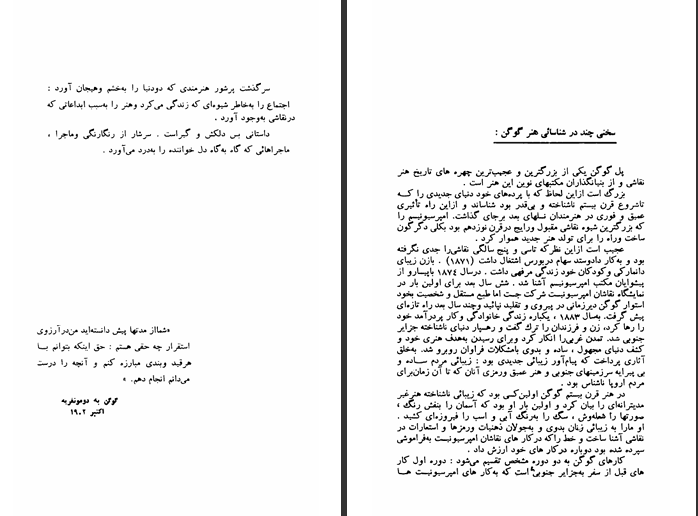 سخنی چند در شناسائی هنر گوگن :
پل گوگن یکی از بزرگترین و عجیب‌ترین چهره های تاریخ هنر
نقاشی و از بنیانگذاران مکتبهای نوین این هنر است .
بزرگ است ازاین لحاظ که با پرده‌های خود دنیای جدیدی را کــه
تاشروع قرن بیستم ناشناخته و بی‌قدر بود شناساند و ازاین راه تأثیری
عمیق و فوری در هنرمندان نسلهای بعد برجای گذاشت. امپرسیونیسم را
که بزرگترین شیوه نقاشی مقبول ورایج درقرن نوزدهم بود بکلی دگرگون
ساخت وراه را برای تولد هنر جدید هموار کرد .
عجیب است ازاین نظرکه تاسی و پنج سالگی نقاشی‌را جدی نگرفته
بود و به‌کار دادوستد سهام دربورس اشتغال داشت (۱۸۷۱) . بازن زیبای
دانمارکی وکودکان خود زندگی مرفهی داشت . درسال ۱۸۷۴ باپیسارو از
پیشوایان مکتب امپرسیونیسم آشنا شد . شش سال بعد برای اولین بار در
نمایشگاه نقاشان امپرسیونیست شرکت جست اما طبع مستقل و شخصیت بخود
استوار گوگن دیرزمانی در پیروی و تقلید نپائید وچند سال بعد راه تازه‌ای
پیش گرفت. به‌سال ۱۸۸۳ ، یکباره زندگی خانوادگی وکار پردرآمد خود
را رها کرد، زن و فرزندان را ترک گفت و رهسپار دنیای ناشناخته جزایر
جنوبی شد. تمدن غربی‌را انکار کرد وبرای رسیدن به‌هدف هنری خود و
کشف دنیای مجهول ، ساده و بدوی بامشکلات فراوان روبرو شد. به‌خلق
آثاری پرداخت که پیام‌آور زیبائی جدیدی بود : زیبائی مردم ســاده و
بی پیرایه سرزمینهای جنوبی و هنر عمیق ورمزی آنان که تا آن زمان‌برای
مردم اروپا ناشناس بود .
در هنر قرن بیستم گوگن اولین‌کسی بود که زیبائی ناشناخته هنرغیر
مدیترانه‌ای را بیان کرد و اولین بار او بود که آسمان را بنفش رنگ ،
صورتها را شعله‌وش ، سگ را به‌رنگ آبی و اسب را فیروزه‌ای کشید .
او مارا به زیبائی زنان بدوی و به‌جولان ذهنیات ورمزها و استعارات در
نقاشی آشنا ساخت و خط راکه درکار های نقاشان امپرسیونیست به‌فراموشی
سپرده شده بود دوباره درکار های خود ارزش داد .
کارهای گوگن به دو دوره مشخص تقسیم می‌شود : دوره اول کار
های قبل از سفر به‌جزایر جنوبی است که به‌کار های امپرسیونیست هــا
سرگذشت پرشور هنرمندی که دودنیا را به‌خشم وهیجان آورد :
اجتماع را به‌خاطر شیوه‌ای که زندگی می‌کرد وهنر را به‌سبب ابداعاتی که
درنقاشی به‌وجود آورد .
داستانی بس دلکش و گیراست . سرشار از رنگارنگی وماجرا ،
ماجراهائی که گاه به‌گاه دل خواننده را به‌درد می‌آورد .
«شمااز مدتها پیش دانسته‌اید من‌درآرزوی
استقرار چه حقی هستم : حق اینکه بتوانم بــا
هرقید وبندی مبارزه کنم و آنچه را درست
می‌دانم انجام دهم. »
گوگن به دومونفرید
اکتبر ۱۹۰۲